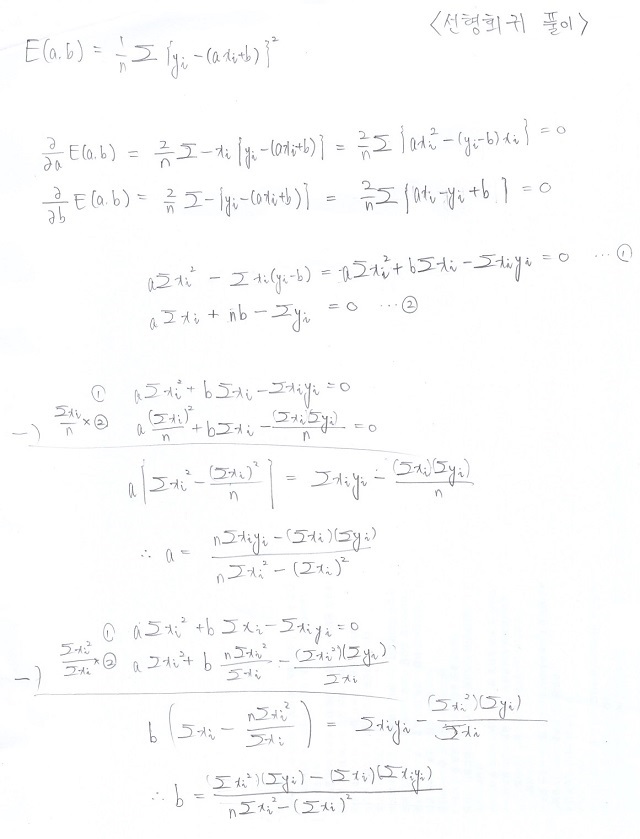 <선형회귀 풀이>
E(a.b) = 1/n Σ {yᵢ-(axᵢ+b)}²
∂/∂a E(a.b) = 2/n Σ -xᵢ{yᵢ-(axᵢ+b)} = 2/n Σ {axᵢ²-(yᵢ-b)xᵢ} = 0
∂/∂b E(a.b) = 2/n Σ -{yᵢ-(axᵢ+b)} = 2/n Σ {axᵢ-yᵢ+b} = 0
aΣxᵢ² - Σxᵢ(yᵢ-b) = aΣxᵢ²+bΣxᵢ-Σxᵢyᵢ = 0 … ①
aΣxᵢ + nb - Σyᵢ = 0 … ②
① aΣxᵢ²+bΣxᵢ-Σxᵢyᵢ=0
-) Σxᵢ/n × ② a(Σxᵢ)²/n + bΣxᵢ - (Σxᵢ)(Σyᵢ)/n = 0
a[Σxᵢ² - (Σxᵢ)²/n] = Σxᵢyᵢ - (Σxᵢ)(Σyᵢ)/n
∴ a = nΣxᵢyᵢ-(Σxᵢ)(Σyᵢ) / nΣxᵢ²-(Σxᵢ)²
① aΣxᵢ²+bΣxᵢ-Σxᵢyᵢ=0
-) Σxᵢ²/Σxᵢ × ② aΣxᵢ²+b nΣxᵢ²/Σxᵢ - (Σxᵢ²)(Σyᵢ)/Σxᵢ
b(Σxᵢ - nΣxᵢ²/Σxᵢ) = Σxᵢyᵢ - (Σxᵢ²)(Σyᵢ)/Σxᵢ
∴ b = (Σxᵢ²)(Σyᵢ)-(Σxᵢ)(Σxᵢyᵢ) / nΣxᵢ²-(Σxᵢ)²